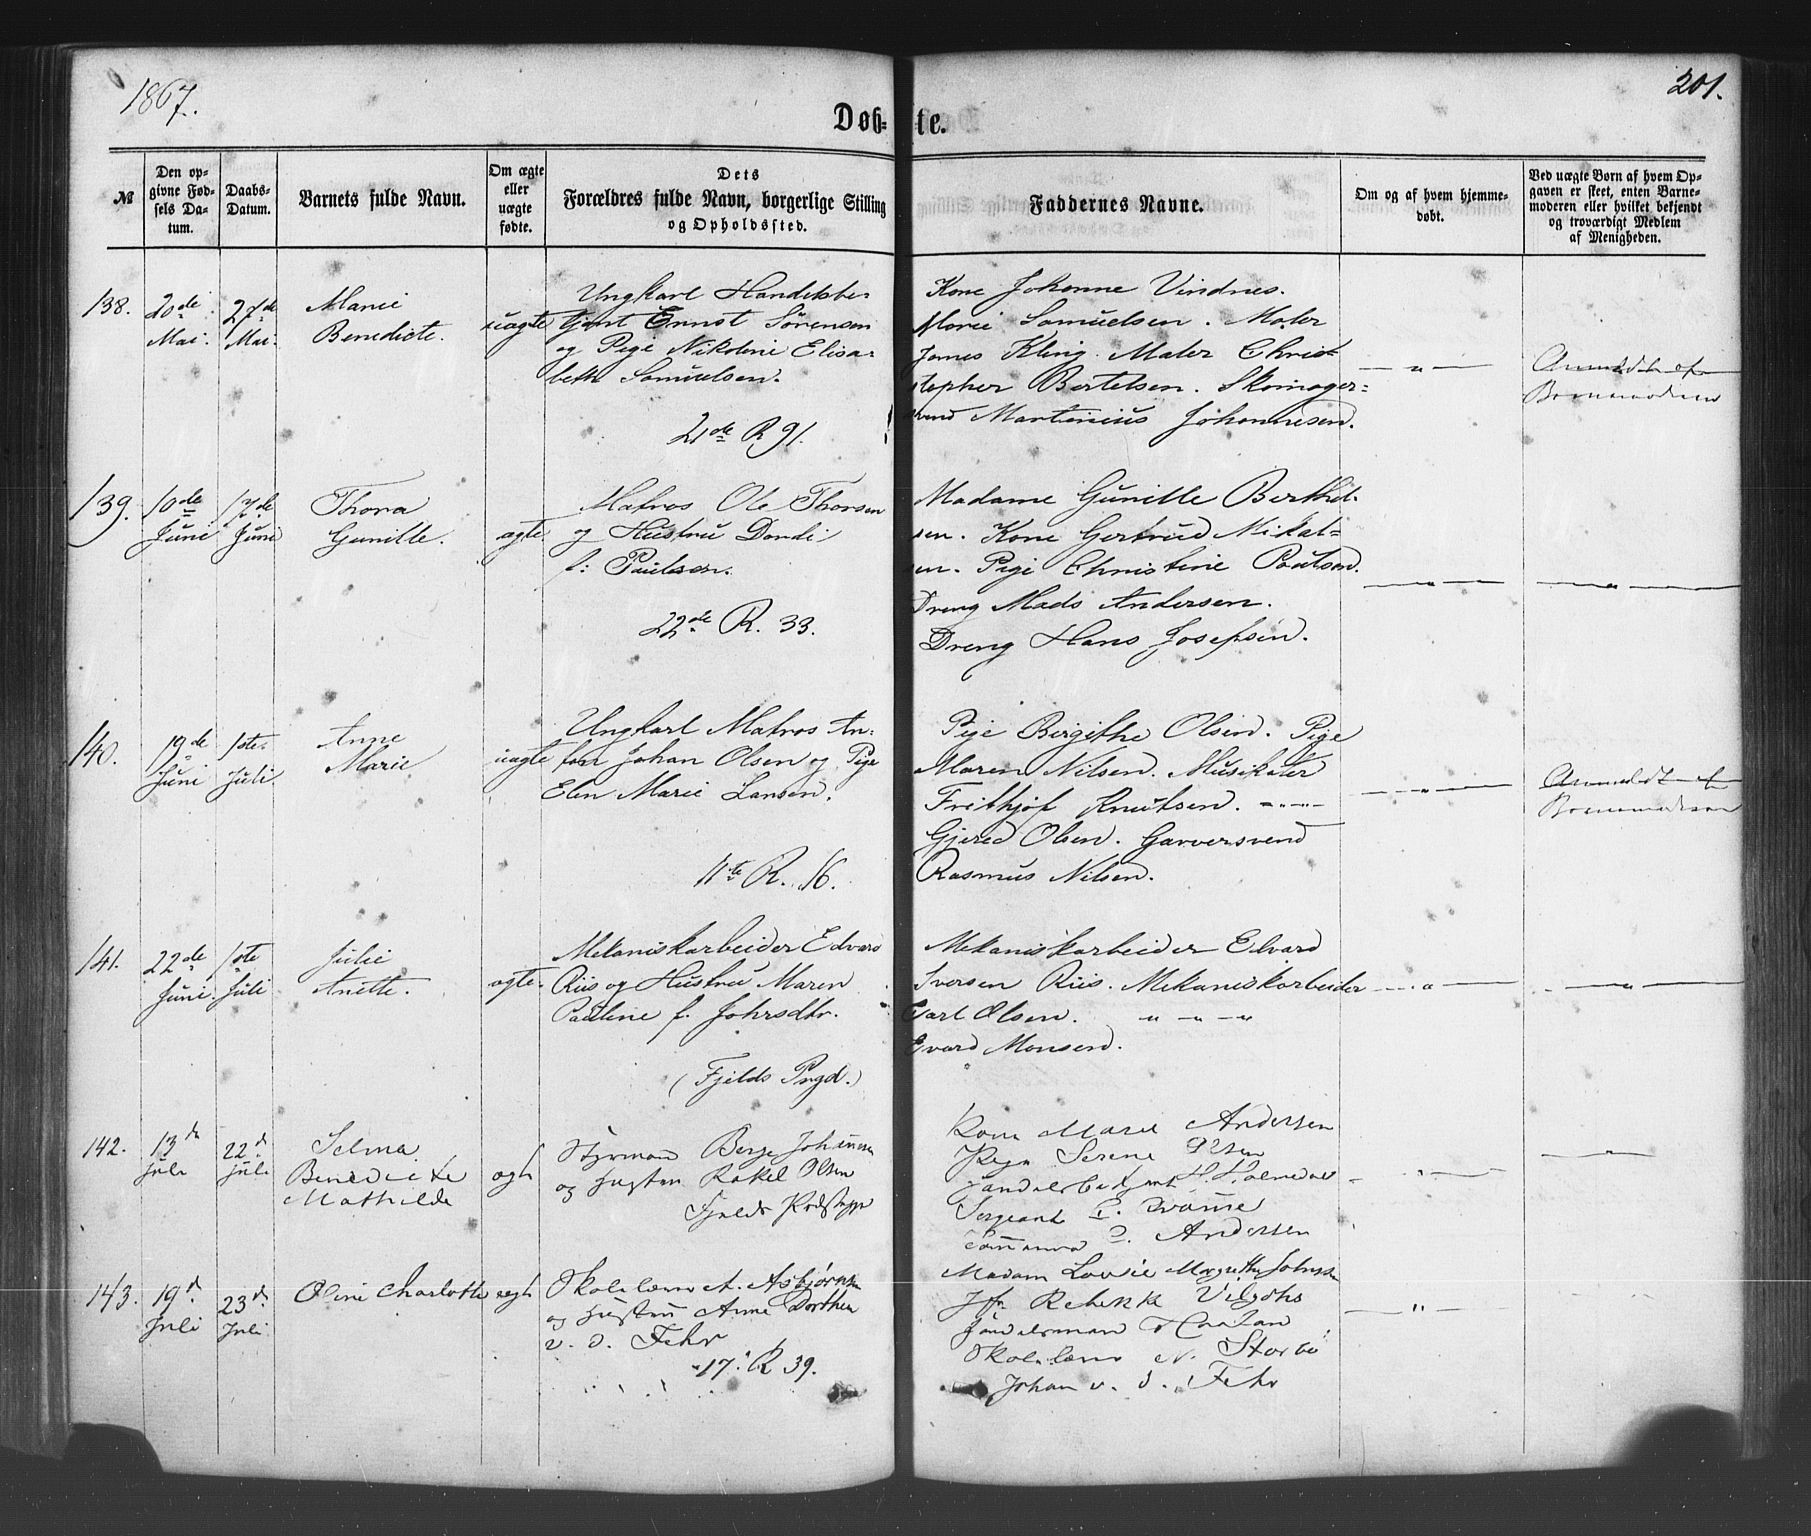 1867.
201.
Døb-
te.
№
Den op-
givne Fød-
sels Da-
tum.
Daabs-
Datum.
Barnets fulde Navn.
Om ægte
eller
uægte
fødte.
Dets
Forældres fulde Navn, borgerlige Stilling
og Opholdssted.
Faddernes Navne.
Om og af hvem hjemme-
døbt.
Ved uægte Børn af hvem Op-
gaven er skeet, enten Barne-
moderen eller hvilket bekjendt
og troværdigt Medlem
af Menigheden.
138.
20de
Mai.
27de
Mai.
Marie
Benedicte.
uægte
Ungkarl Handelsbe-
tjent Ernst Sørensen
og Pige Nikoline Elisa-
beth Samuelsen.
21de R 91.
Kone Johanne Vindnes.
Marie Samuelsen. Maler
James Kling. Maler Chris-
topher Bertelsen. Skomager-
svend Martinius Johannesen.
— " —
Anmeldt af
Barnemoderen
139.
10de
Juni
17de
Juni
Thora
Gunille.
ægte
Matros Ole Thorsen
og Hustru Dordi
f: Paulsen.
22de R. 33.
Madame Gunille Berthel-
sen. Kone Gertrud Mikal-
sen. Pige Christine Poulsen.
Dreng Mads Andersen.
Dreng Hans Josefsen.
— " —
— " —
140.
19de
Juni
1ste
Juli
Anne
Marie
uægte
Ungkarl Matros An-
ton Johan Olsen og Pige
Elen Marie Larsen.
11te R. 16.
Pige Birgithe Olsen. Pige
Maren Nilsen. Musikater
Frithjof Knutsen. — " —
Gjered Olsen. Garversvend
Rasmus Nilsen.
— " —
Anmeldt af
Barnemoderen
141.
22de
Juni
1ste
Juli
Julie
Anette.
ægte.
Mekaniskarbeider Edvard
Riis og Hustru Maren
Pauline f. Johrsdtr.
(Fjelds Prgd.)
Mekaniskarbeider Elvard
Iversen Riis. Mekaniskarbeider
Carl Olsen. " — " — "
Evard Monsen.
— " —
— " —
142.
13de
Juli
22d
Juli
Selma
Benedicte
Mathilde
ægt
Styrmand Berge Johannesen
og Hustru Rakel Olsen
Fjelds Prdstgjp
Kone Marie Andersen
Pige Serene Olsen
Handelsbetjent H. Holmedal
Sergeant
Andersen
— " —
— " —
143.
19d
Juli
23d.
Juli
Oline Charlotte
ægt
Skolelærer A. Asbjørnsen
og Hustru Anne Dorthea
v. d. Fehr
17. R 39.
Madam Lovise Margrethe Johnsen
Jfr. Rebekke
Handelsmand
Skolelærer N. Storbø
Johan v. d. Fehr
— " —